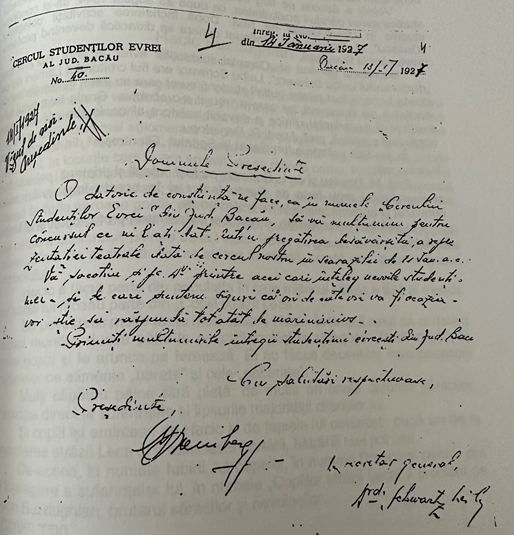 CERCUL STUDENŢILOR EVREI
AL JUD. BACĂU
No. 40.
4
Inreg. la No.
din 14 Ianuarie 1927
4
Bacău 13/I 1927
14/I/1927
Președinte,
Domnule Președinte
O datorie de conștiință ne face, ca în numele Cercului
Studenților Evrei din Jud. Bacău, să vă mulțumim pentru
concursul ce ni l-ați dat întru pregătirea desăvârșită a repre
zentației teatrale dată de cercul nostru în seara zilei de 11 Ian. a.c.
Vă socotim și pe Dv. printre acei care înțeleg nevoile studenți
mei - și pe care putem siguri că ori de câte ori va fi ocazia -
vor ști să răspundă tot atât de mărinimos -
Primiți mulțumirile întregii studențimi evreești din Jud. Bacău
Cu salutări respectuoase,
Președinte,
Secretar general,
Schwartz